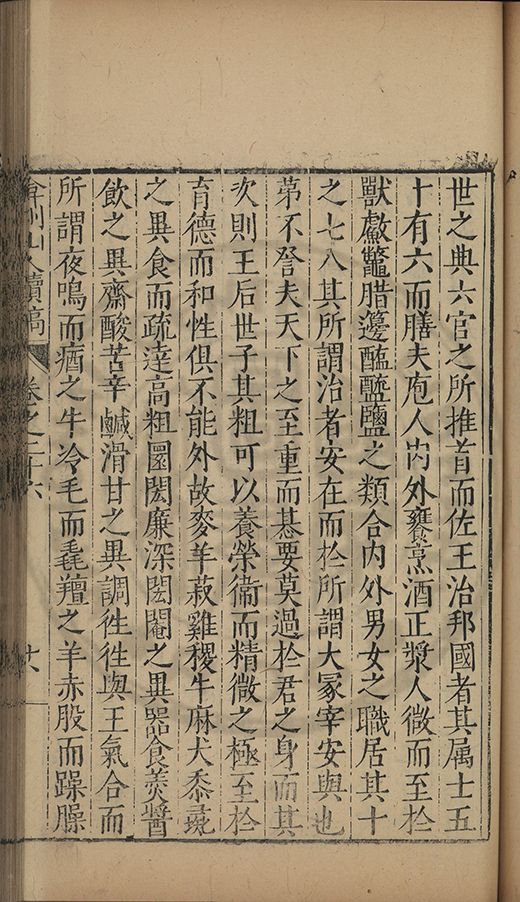 世之典六官之所推首而佐王治邦國者其属士五
十有六而膳夫庖人内外饔烹酒正漿人微而至於
獸䱷鼈腊籩醢醯鹽之類合内外男女之職居其十
之七八其所謂治者安在而於所謂大冢宰安與也
苐不詧夫天下之至重而惎要莫過於君之身而其
次則王后世子其粗可以養榮衞而精微之極至於
育德而和性俱不能外故麥羊菽雞稷牛麻犬黍彘
之異食而疏達高粗圜閎廉深閎闔之異器食羮醬
飲之異齊酸苦辛鹹滑甘之異調徃徃與王氣合而
所謂夜鳴而㾞之牛冷毛而毳羶之羊赤股而躁臊
弇州山人續稿 卷之二十六